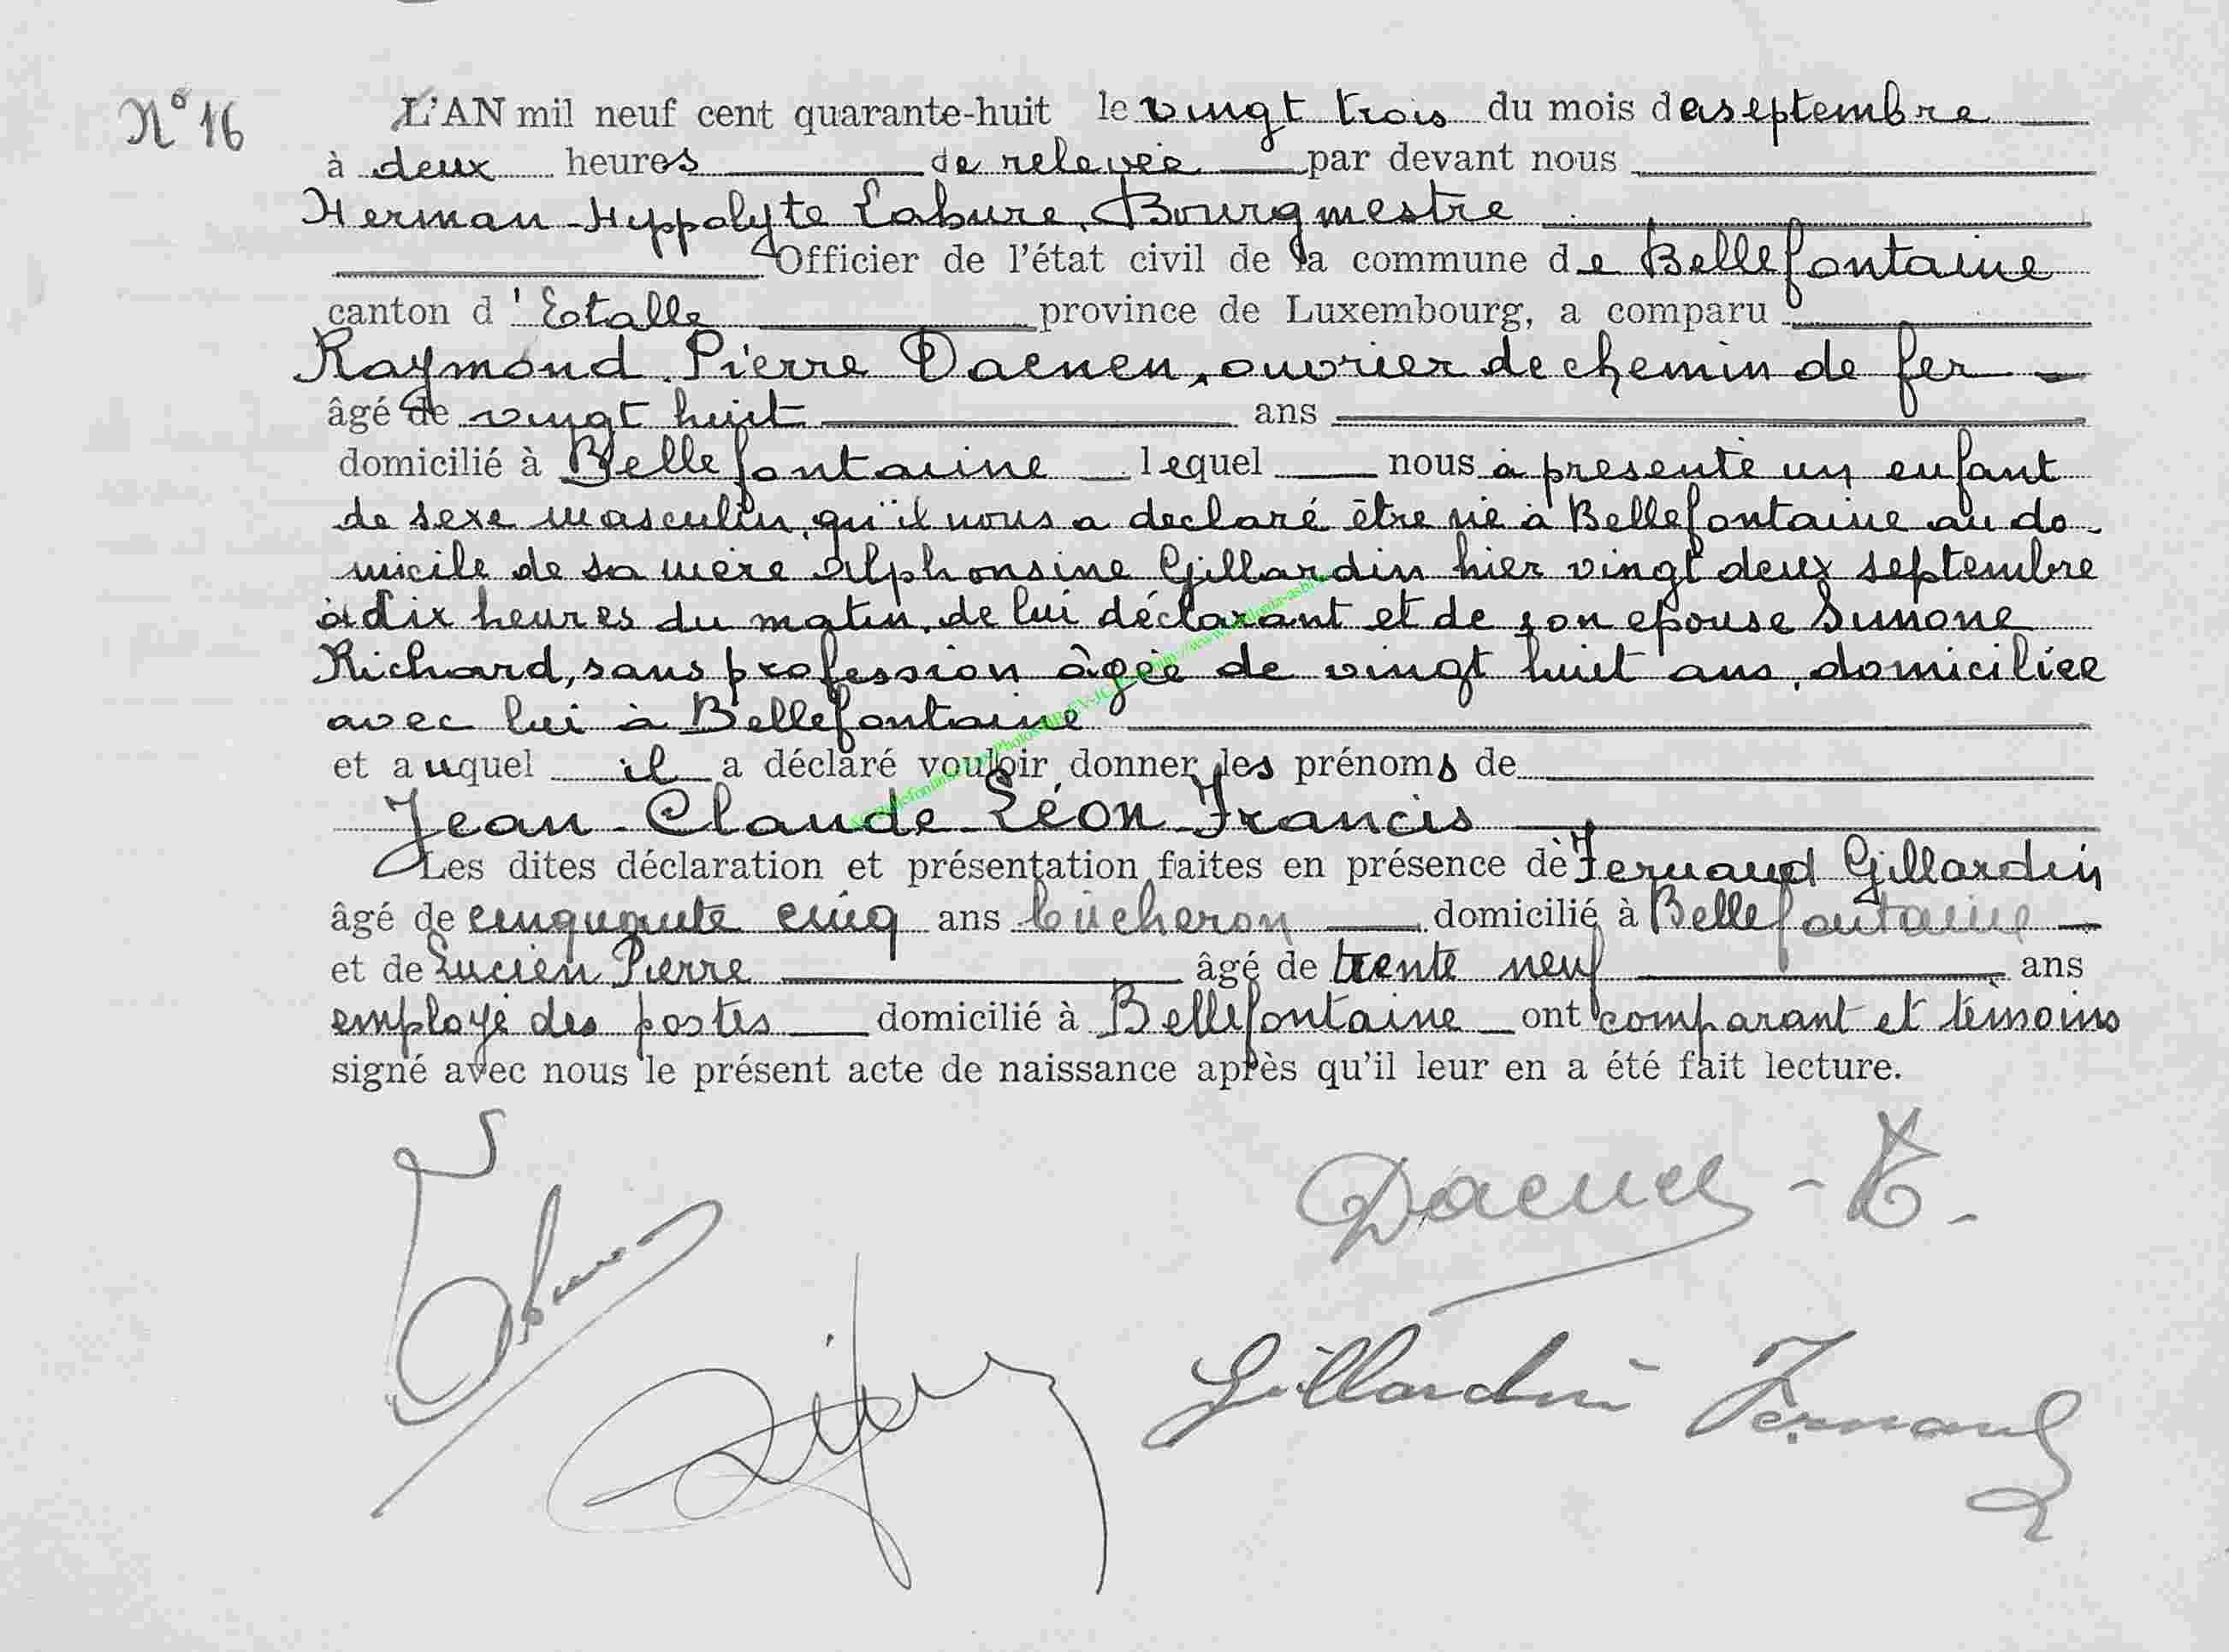 N° 16
L'AN mil neuf cent quarante-huit le vingt trois du mois de septembre
à deux heures de relevée par devant nous
Herman-Hyppolyte Labure, Bourgmestre
Officier de l'état civil de la commune de Bellefontaine
canton d'Etalle province de Luxembourg, a comparu
Raymond Pierre Daenen, ouvrier de chemin de fer
âgé de vingt huit ans
domicilié à Bellefontaine lequel nous a présenté un enfant
de sexe masculin, qu'il nous a déclaré être né à Bellefontaine au do-
micile de sa mère Alphonsine Gillardin hier vingt deux septembre
à dix heures du matin, de lui déclarant et de son épouse Simone
Richard, sans profession âgée de vingt huit ans, domiciliée
avec lui à Bellefontaine
et auquel il a déclaré vouloir donner les prénoms de
Jean-Claude Léon Francis
Les dites déclaration et présentation faites en présence de Fernand Gillardin
âgé de cinquante cinq ans bûcheron domicilié à Bellefontaine
et de Lucien Pierre âgé de trente neuf ans
employé des postes domicilié à Bellefontaine ont comparant et témoins
signé avec nous le présent acte de naissance après qu'il leur en a été fait lecture.
Daenen
Gillardin Fernand